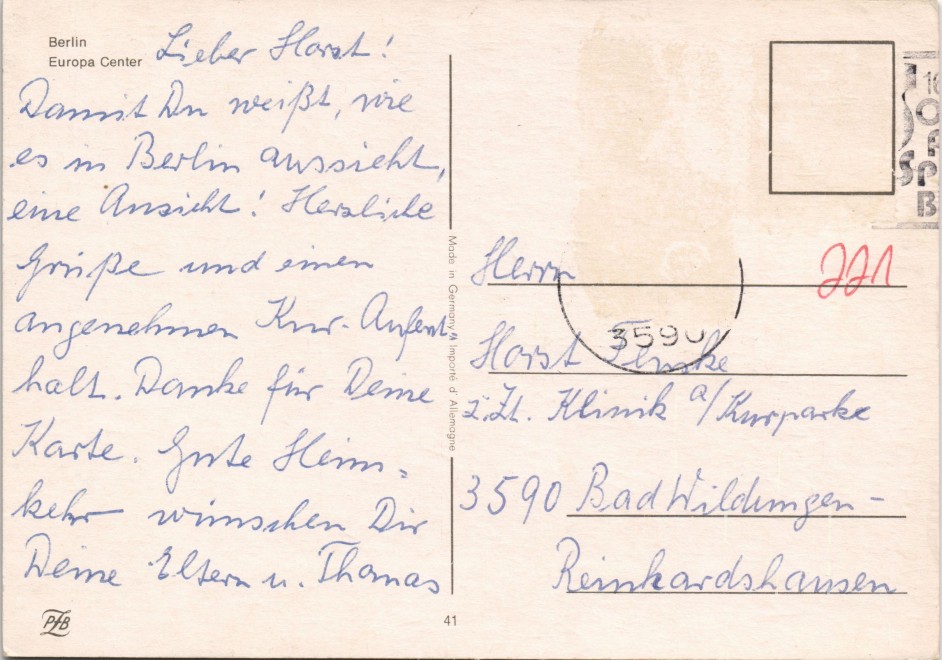 Berlin
Europa Center
Lieber Horst!
Damit Du weißt, wie
es in Berlin aussieht,
eine Ansicht! Herzliche
Grüße und einen
angenehmen Kur-Aufent-
halt. Danke für Deine
Karte. Gute Heim-
kehr wünschen Dir
Deine Eltern u. Thomas
PfB
41
Made in Germany / Importé d'Allemagne
10
3590
221
Herrn
Horst
z. Zt. Klinik a/Kurparke
3590 Bad Wildungen-
Reinhardshausen